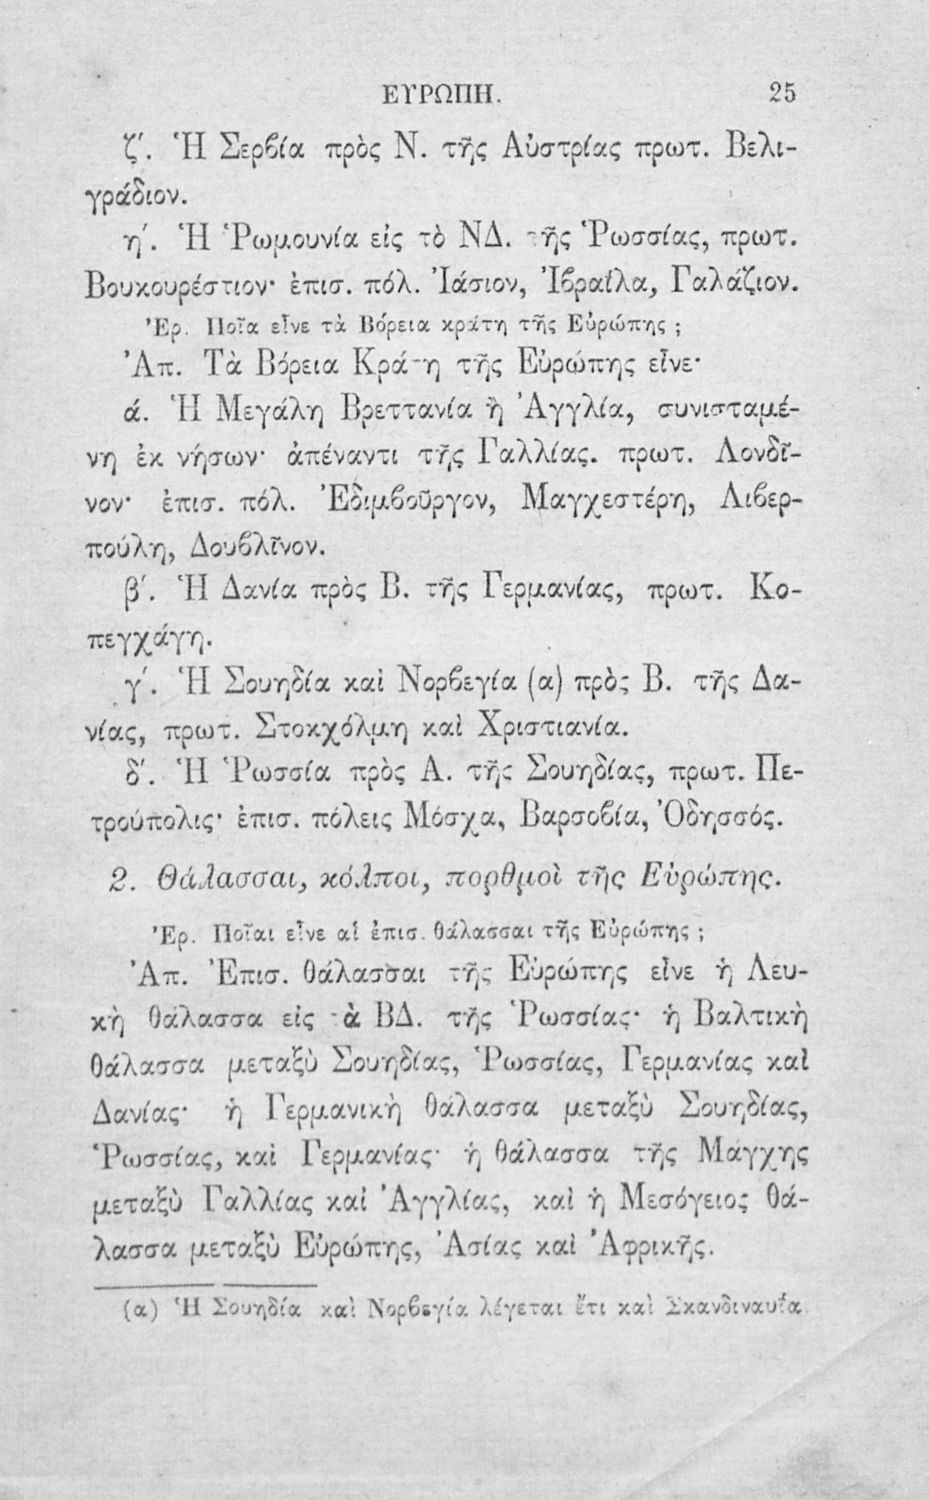 ΕΥΡΩΠΗ. 25
ζ΄. Ἡ Σερβία πρὸς Ν. τῆς Αὐστρίας πρωτ. Βελι-
γράδιον.
η΄. Ἡ Ῥωμουνία εἰς τὸ ΝΔ. τῆς Ῥωσσίας, πρωτ.
Βουκουρέστιον· ἐπισ. πόλ. Ἰάσιον, Ἰβραΐλα, Γαλάζιον.
Ἐρ. Ποῖα εἶνε τὰ Βόρεια κράτη τῆς Εὐρώπης ;
Ἀπ. Τὰ Βόρεια Κράτη τῆς Εὐρώπης εἶνε·
ά. Ἡ Μεγάλη Βρεττανία ἢ Ἀγγλία, συνισταμέ-
νη ἐκ νήσων· ἀπέναντι τῆς Γαλλίας. πρωτ. Λονδῖ-
νον· ἐπισ. πόλ. Ἐδιμβοῦργον, Μαγχεστέρη, Λιβερ-
πούλη, Δουβλῖνον.
β΄. Ἡ Δανία πρὸς Β. τῆς Γερμανίας, πρωτ. Κο-
πεγχάγη.
γ΄. Ἡ Σουηδία καὶ Νορβεγία (α) πρὸς Β. τῆς Δα-
νίας, πρωτ. Στοκχόλμη καὶ Χριστιανία.
δ΄. Ἡ Ῥωσσία πρὸς Α. τῆς Σουηδίας, πρωτ. Πε-
τρούπολις· ἐπισ. πόλεις Μόσχα, Βαρσοβία, Ὀδησσός.
2. Θάλασσαι, κόλποι, πορθμοὶ τῆς Εὐρώπης.
Ἐρ. Ποῖαι εἶνε αἱ ἐπισ. θάλασσαι τῆς Εὐρώπης ;
Ἀπ. Ἐπισ. θάλασσαι τῆς Εὐρώπης εἶνε ἡ Λευ-
κὴ θάλασσα εἰς τὰ ΒΔ. τῆς Ῥωσσίας· ἡ Βαλτικὴ
θάλασσα μεταξὺ Σουηδίας, Ῥωσσίας, Γερμανίας καὶ
Δανίας· ἡ Γερμανικὴ θάλασσα μεταξὺ Σουηδίας,
Ῥωσσίας, καὶ Γερμανίας· ἡ θάλασσα τῆς Μάγχης
μεταξὺ Γαλλίας καὶ Ἀγγλίας, καὶ ἡ Μεσόγειος θά-
λασσα μεταξὺ Εὐρώπης, Ἀσίας καὶ Ἀφρικῆς.
(α) Ἡ Σουηδία καὶ Νορβεγία λέγεται ἔτι καὶ Σκανδιναυΐα.